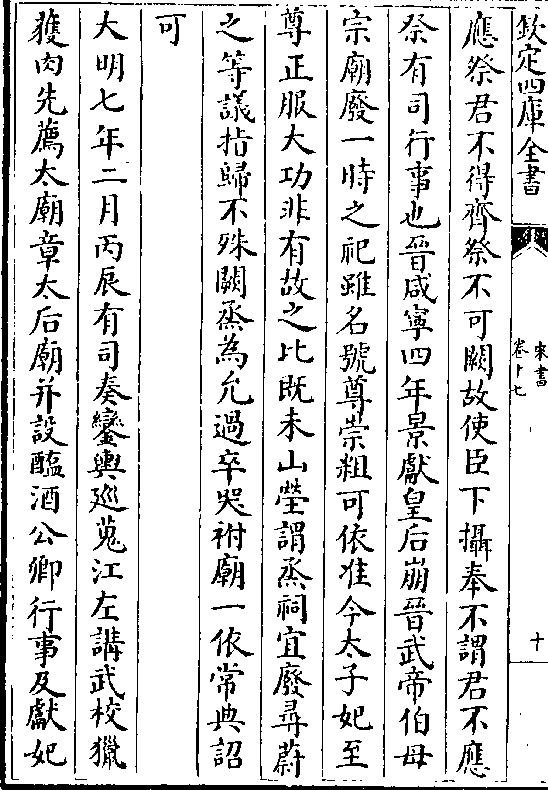 欽定四庫全書
宋書
卷十七
十
應祭君不得齊祭不可闕故使臣下攝奉不謂君不應
祭有司行事也晉咸寧四年景獻皇后崩晉武帝伯母
宗廟廢一時之祀雖名號尊崇粗可依准今太子妃至
尊正服大功非有故之比既未山塋謂烝祠宜廢尋蔚
之等議指歸不殊闕烝為允過卒哭祔廟一依常典詔
可
大明七年二月丙辰有司奏鑾輿廵蒐江左講武校獵
獲肉先薦太廟章太后廟并設醢酒公卿行事及獻妃